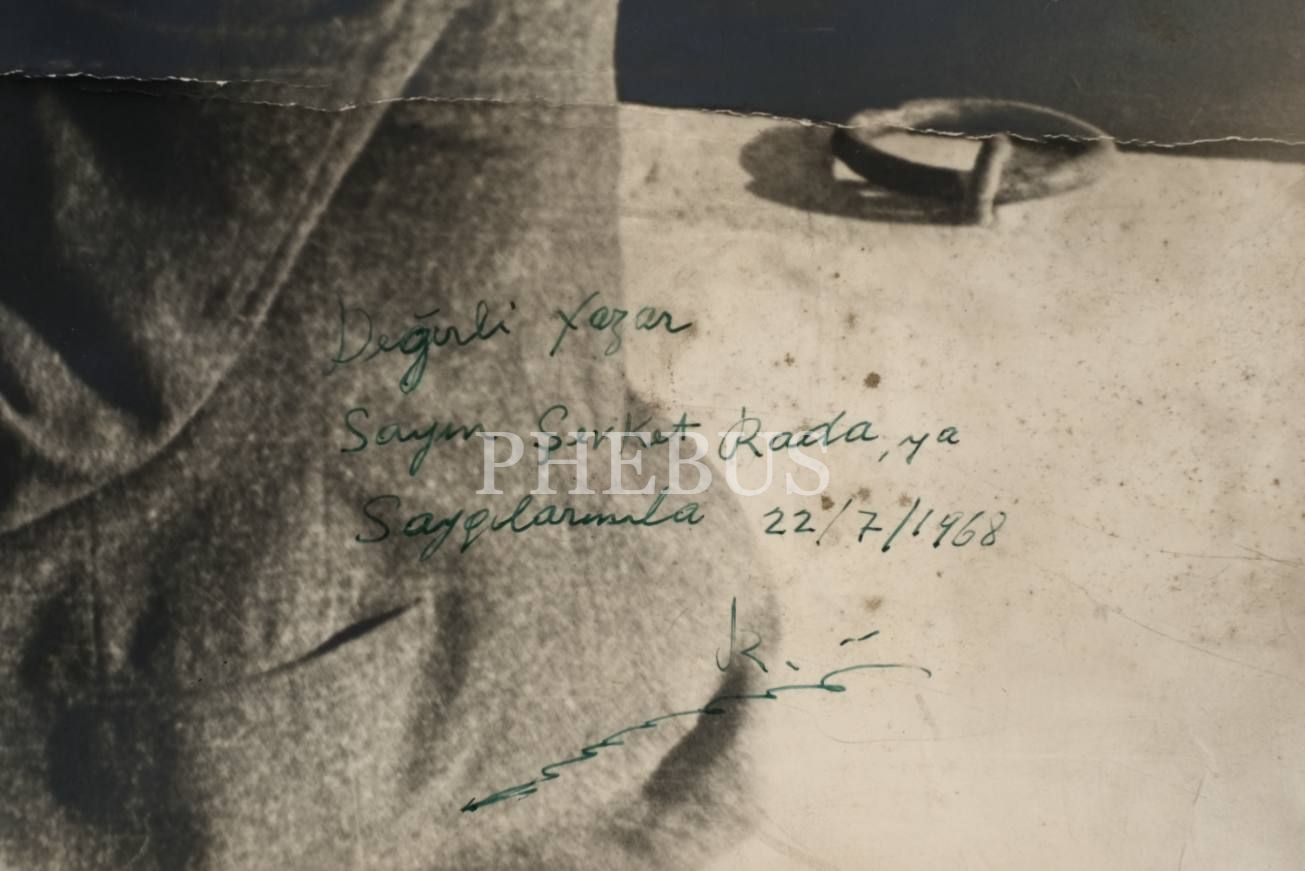 Değerli Yazar
Sayın Şevket Rada,ya
PHEBUS
Saygılarımla 22/7/1968